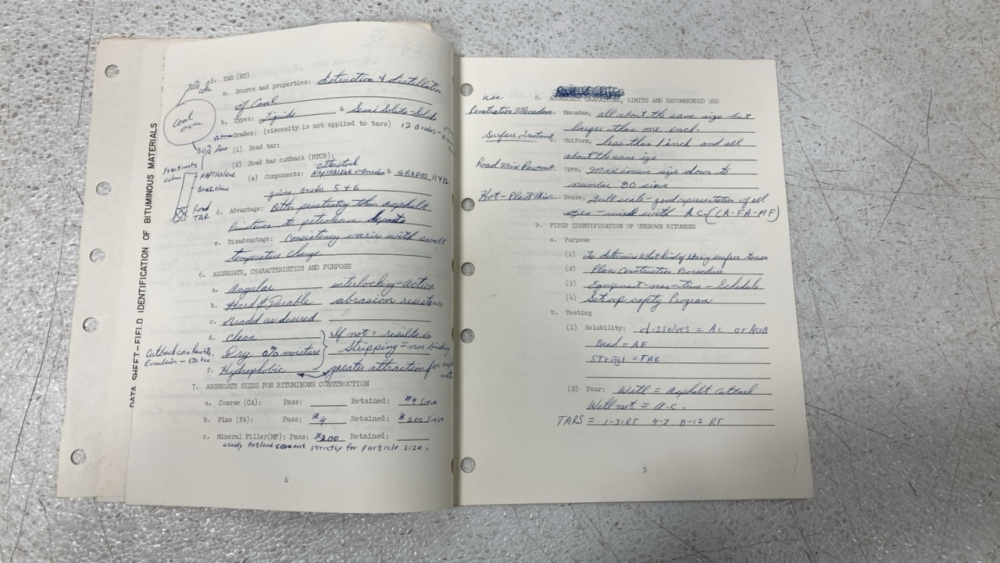 DATA SHEET-FIELD IDENTIFICATION OF BITUMINOUS MATERIALS
5. TAR (RT)
a. Source and properties: destruction & distillation
of Coal
b. Types: Liquids & Semi Solids - Solids
Grades: (viscosity is not applied to tars) 12 Grades
(1) Road tar:
(2) Road tar cutback (RTCB):
cutterstock
(a) Components: & GRADES 11 & 12
gives grades 5 & 6
d. Advantage: Better penetrating than asphalt
to petroleum
e. Disadvantage: Consistency varies with small
temperature change
Coal oven
NAPTHALENE
Road TAR
6. AGGREGATE, CHARACTERISTICS AND PURPOSE
a. Angular interlocking-active
b. Hard & Durable abrasion resistance
c. Graded as desired
d. Clean
If not = results in
Stripping = non binding
e. Dry 0% moisture
f. Hydrophobic greater attraction for
Cutback can have
Emulsion -
7. AGGREGATE SIZES FOR BITUMINOUS CONSTRUCTION
a. Coarse (CA): Pass: Retained: #4 Sieve
b. Fine (FA): Pass: #4 Retained: #200 Sieve
c. Mineral Filler(MF): Pass: #200 Retained:
portland cement strictly for particle size.
4
use
8. AGGREGATE GRADATIONS, LIMITS AND RECOMMENDED USE
Penetration Macadam
Macadam, all about the same size but
larger than one inch.
Surface treatment
b. Uniform, less than 1 inch and all
about the same size
Road Mix Pavement
Open, Maximum size down to
number 80 sieve
Hot-Plant Mix
Dense, full scale-good representation of all
sizes - made with AC (CA-FA-MF)
9. FIELD IDENTIFICATION OF UNKNOWN BITUMENS
a. Purpose
(1) To determine what kind of
(2) Plan Construction Procedure
(3) Equipment-men-time-Schedule
(4) Set up safety Program
b. Testing
(1) Solubility: dissolves = AC or
Bead = AE
Strings = TAR
(2) Pour: Will = asphalt cutback
Will not = a-c.
TARS = 1-3-RT 5-7 8-12 RT
5